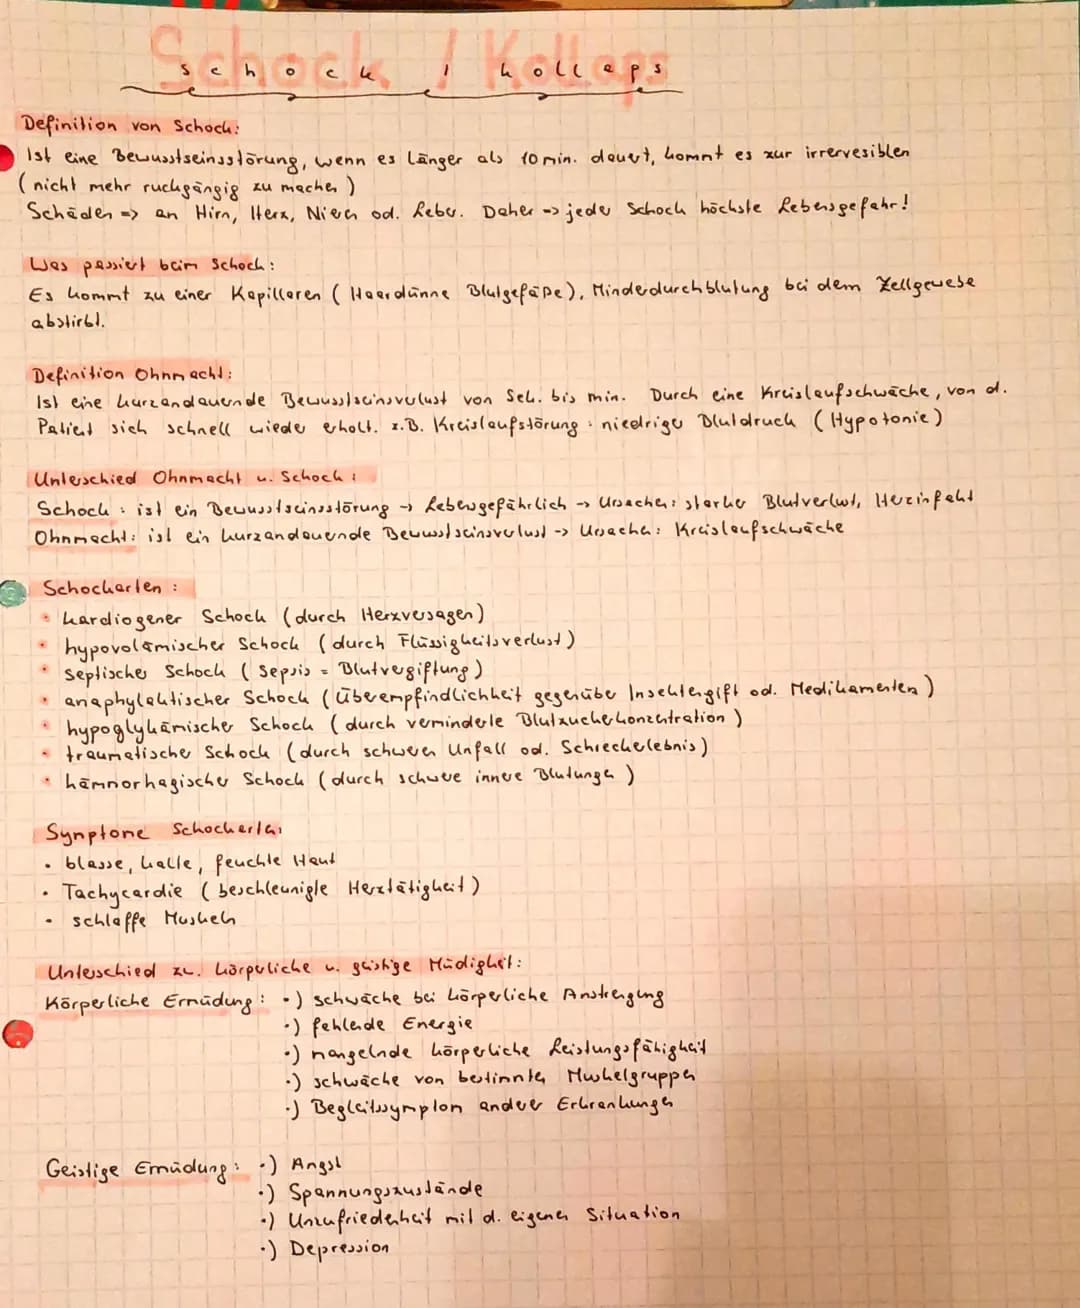 Schock / Kollaps
Definition von Schock:
Ist eine Bewusstseinsstörung, wenn es länger als 10 min. dauert, kommt es zur irrervesiblen
(nicht mehr ruckgängig zu machen)
Schäden => an Hirn, Herz, Nieren od. Leber. Daher => jeder Schock höchste Lebensgefahr!
Was passiert beim Schock:
Es kommt zu einer Kapillaren (Haardünne Blutgefäße), Minderdurchblutung bei dem Zellgewebe
abstirbt.
Definition Ohnmacht:
Ist eine kurzandauernde Bewusstseinsverlust von Sek. bis min. Durch eine Kreislaufschwäche, von d.
Patient sich schnell wieder erholt. z.B. Kreislaufstörung: niedriger Blutdruck (Hypotonie)
Unterschied Ohnmacht u. Schock:
Schock: ist ein Bewusstseinsstörung -> Lebensgefährlich -> Ursachen: starker Blutverlust, Herzinfakt
Ohnmacht: ist ein kurzandauernde Bewusstseinsverlust -> Ursachen: Kreislaufschwäche
Schockarten:
• kardiogener Schock (durch Herzversagen)
• hypovolämischer Schock (durch Flüssigkeitsverlust)
• septischer Schock (Sepsis = Blutvergiftung)
• anaphylaktischer Schock (Überempfindlichkeit gegenüber Insektengift od. Medikamenten)
• hypoglykämischer Schock (durch verminderte Blutzuckerkonzentration)
• traumatischer Schock (durch schweren Unfall od. Schreckerlebnis)
• hämnorhagischer Schock (durch schwere innere Blutungen)
Symptome Schockarten:
• blasse, kalte, feuchte Haut
• Tachycardie (beschleunigte Herztätigkeit)
• schlaffe Muskeln
Unterschied zw. körperliche u. geistige Müdigkeit:
Körperliche Ermüdung: •) schwäche bei körperliche Anstrengung
•) fehlende Energie
•) mangelnde körperliche Leistungsfähigkeit
•) schwäche von bestimmten Muskelgruppen
•) Begleitssymptom anderer Erkrankungen
Geistige Ermüdung: •) Angst
•) Spannungszustände
•) Unzufriedenheit mit d. eigenen Situation
•) Depression